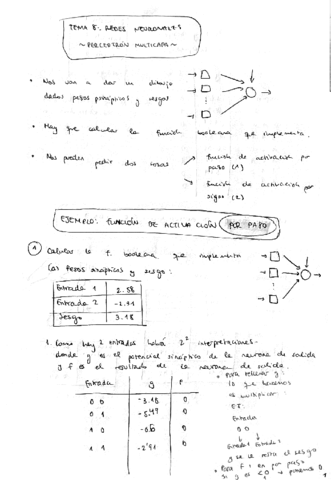 TEMA 8: REDES NEURONALES
~ PERCEPTRÓN MULTICAPA ~
• Nos van a dar un dibujo
dados pesos sinápticos y sesgo
• Hay que calcular la función booleana que implementa.
• Nos pueden pedir dos cosas
función de activación por
paso (1)
función de activación por
signo (2)
EJEMPLO: FUNCIÓN DE ACTIVACIÓN POR PASO
1 Calcular la f. booleana que implementa
los pesos sinápticos y sesgo:
Entrada 1 2.58
Entrada 2
Sesgo 3.18
1. Como hay 2 entradas habrá 2² interpretaciones.
donde y es el potencial sináptico de la neurona de salida
y f es el resultado de la neurona de salida.
Entrada y f
0 0 -3.18 0
0 1 0
1 0 0
1 1 0
• Para rellenar y:
lo que hacemos
es multiplicar
EJ:
Entrada
0 0
Entrada 1 Entrada 2
y se le resta el sesgo
• Para f: